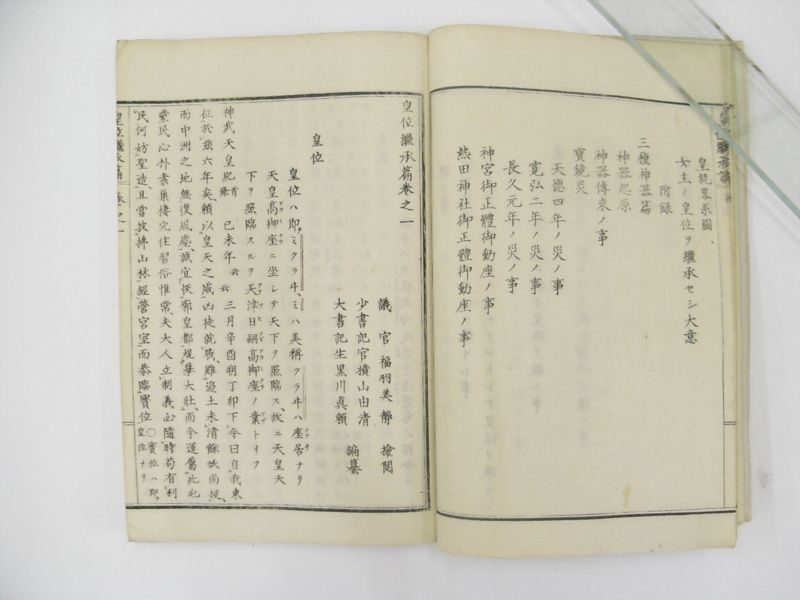 皇統畧系圖
女主ノ皇位ヲ繼承セシ大意
附録
三種神器篇
神器起原
神器傳來ノ事
寶鏡災
天德四年ノ災ノ事
寛弘二年ノ災ノ事
長久元年ノ災ノ事
神宮御正體御動座ノ事
熱田神社御正體御動座ノ事
皇位繼承篇卷之一
議官福羽美靜 檢閲
少書記官横山由清
大書記生黒川真頼 編纂
皇位
皇位ハ即ミクラヰ、ミハ美稱クラヰハ座居ナリ
天皇高御座ニ坐シテ天下ヲ照臨ス、故ニ天皇天
下ヲ照臨スルヲ天津日嗣高御座ノ業トイフ
神武天皇紀 己未年云云三月辛酉朔丁卯下令曰自我東
征於茲六年矣、頼以皇天之威凶徒就戮、雖邊土未清餘妖尚梗、
而中洲之地無復風塵、誠宜恢廓皇都規摹大壯、而今運屬此屯
蒙民心朴素巣棲穴住習俗惟常、夫大人立制義必隨時苟有利
民何妨聖造、且當披拂山林經營宮室而恭臨寶位 ○寶位ハ即皇位ナリ
皇位繼承篇 卷之一